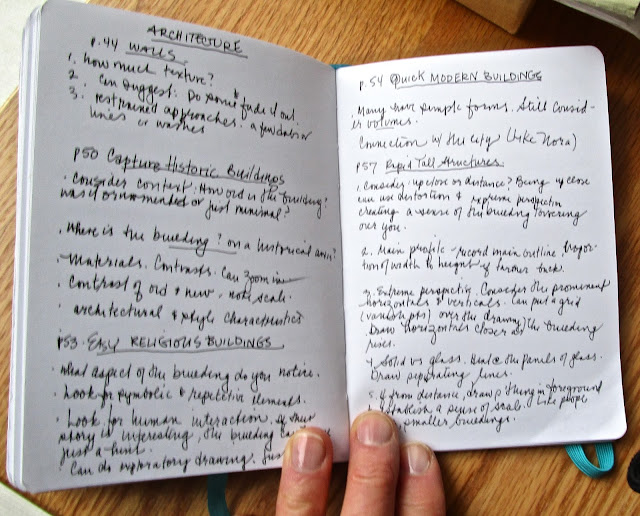 ARCHITECTURE
p.44 WALLS.
1. How much texture?
2. Can suggest. Do some & fade it out.
3. restrained approaches. a few dabs or
lines or washes
p50 Capture Historic Buildings
. Consider context. How old is the building?
was it ornamented or just minimal?
. Where is the building? on a historical
. Materials. Contrasts. Can zoom in
. Contrast of old & new. note scale.
. architectural & style characteristics
p53. Easy RELIGIOUS BUILDINGS
. What aspect of the building do you notice.
. Look for symbolic & repetitive elements.
. Look for human interaction. if their
story is interesting, the building can
just a hint.
Can do exploratory drawing.
p.54 Quick MODERN BUILDINGS
. Many have simple forms. Still consid-
er volumes.
Connection w/ the city (like Nora)
p57 Rapid Tall Structures.
1. Consider: up close or distance? Being up close
can use distortion & extreme perspective
creating a sense of the building towering
over you.
2. Main profile - record main outline. Propor-
tion of width to height
3. Extreme perspective. Consider the prominent
horizontals & verticals. Can put a grid
(vanish pts) over the drawing.
Draw horizontals closer as the building
rises.
4. Solid vs glass. the panels of glass.
Draw separating lines.
5. If from distance, draw s'thing in foreground
establish a sense of scale. Like people
smaller buildings.